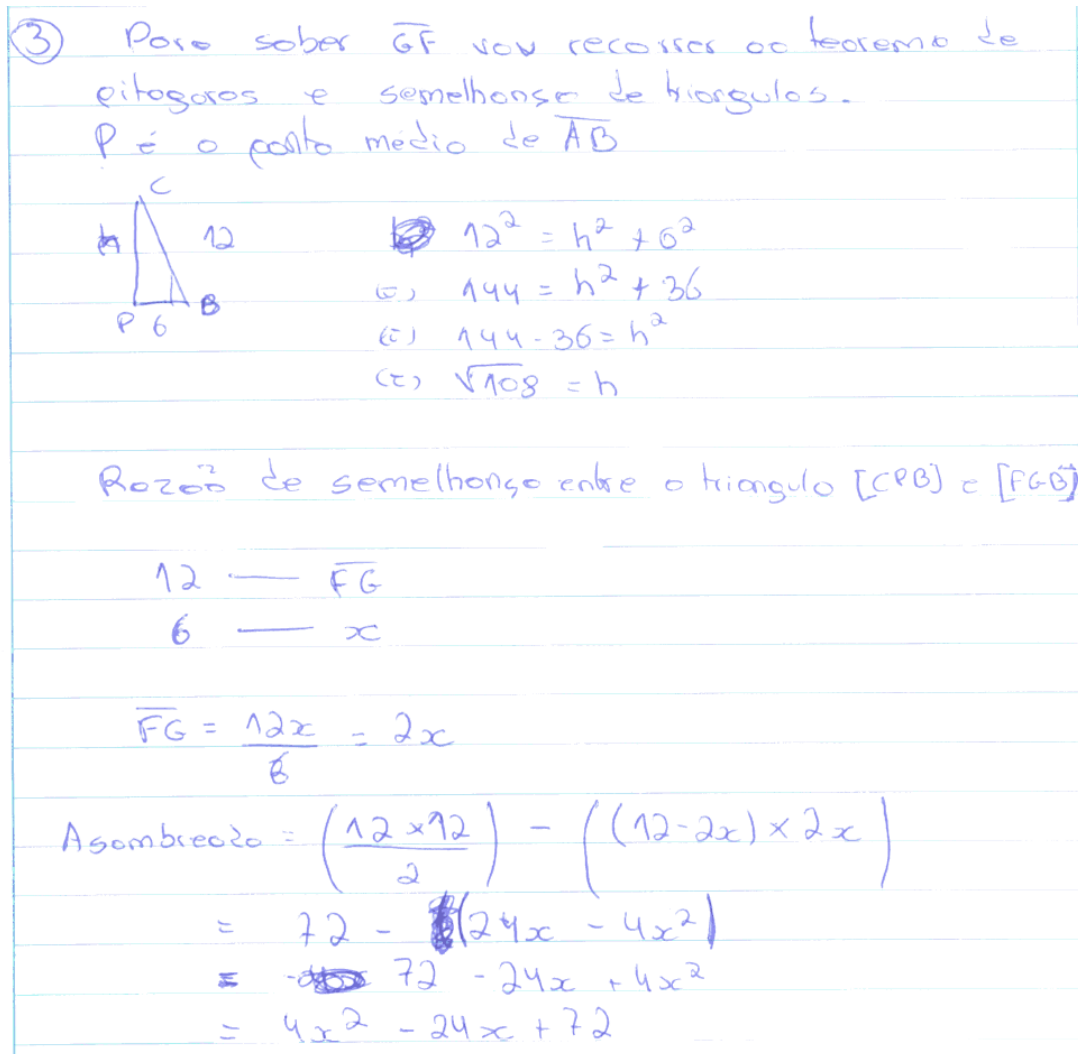 ③ Para saber G̅F̅ vou recorrer ao teorema de
pitagoras e semelhanse de triangulos.
P é o ponto médio de A̅B̅
C
h 12
P 6 B
12² = h² + 6²
(=) 144 = h² + 36
(=) 144 - 36 = h²
(=) √108 = h
Razão de semelhança entre o triangulo [CPB] e [FGB]
12 — F̅G̅
6 — x
F̅G̅ = 12x/6 = 2x
Asombreada = (12 × 12/2) - ((12 - 2x) × 2x)
= 72 - (24x - 4x²)
= 72 - 24x + 4x²
= 4x² - 24x + 72